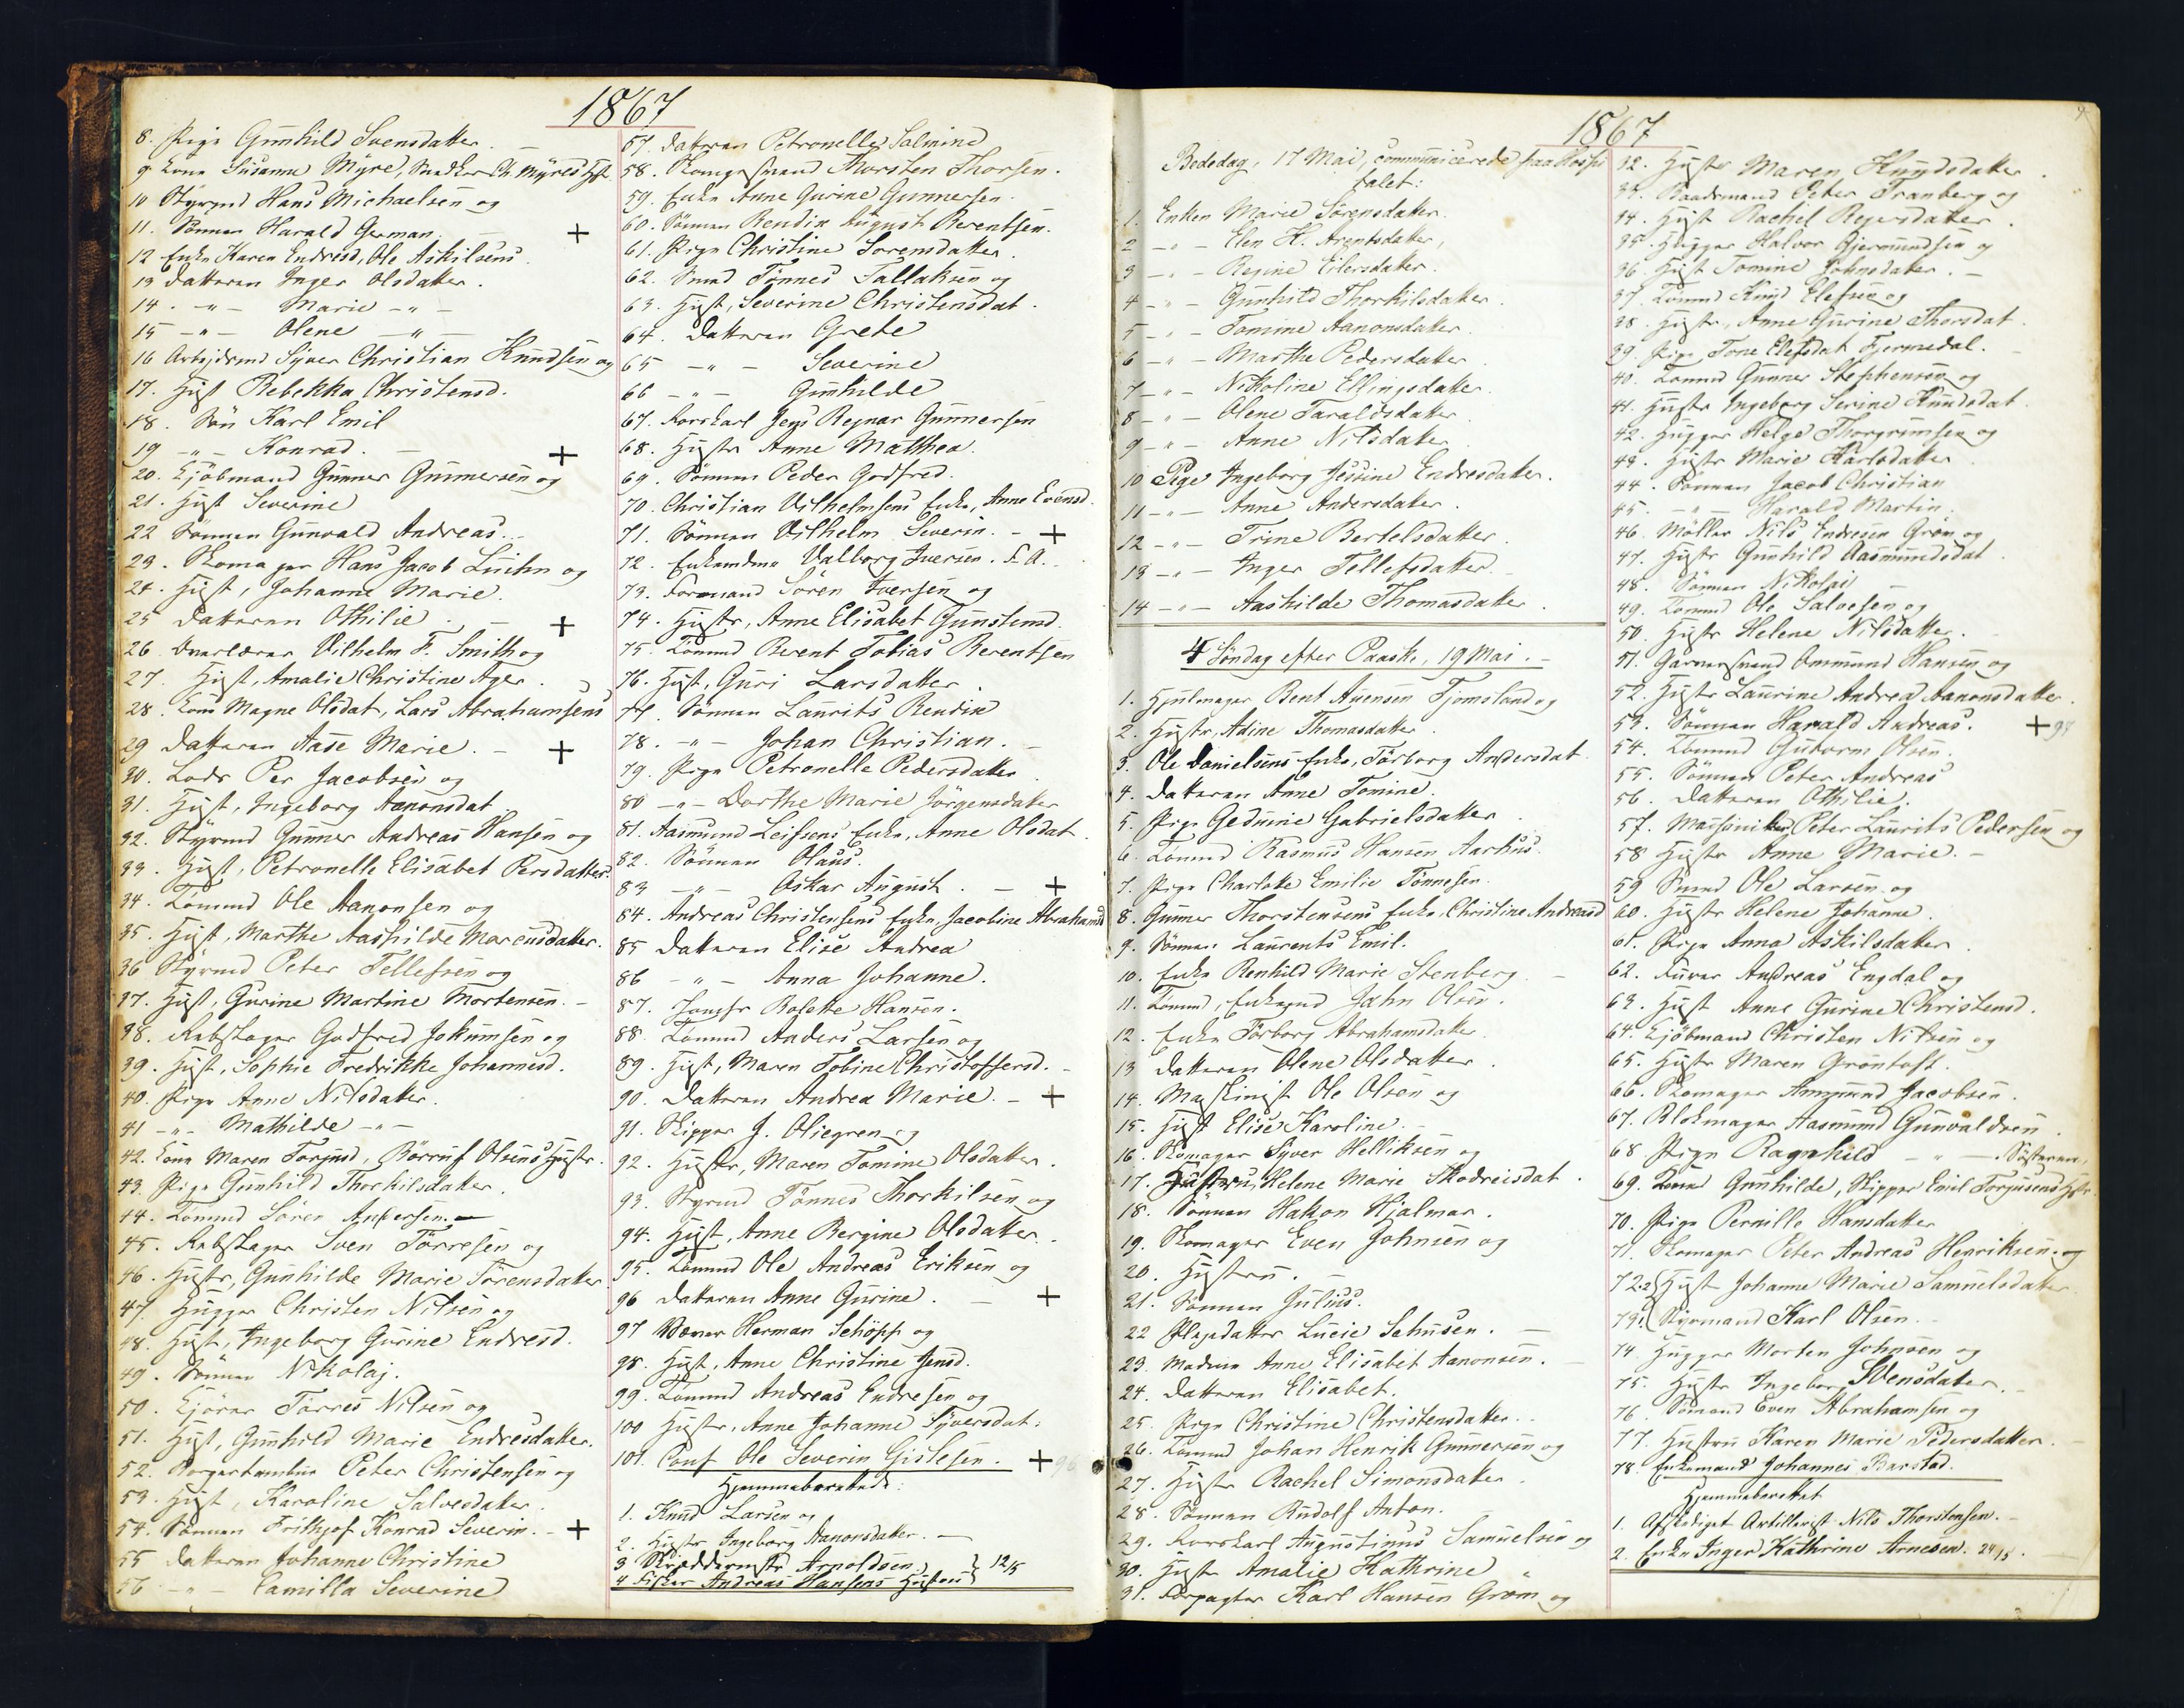 1867
8. Pige Gunhild Svensdatter.
9. Kone Susanne Myre, Snedker Ch. Myres Hst.
10 Styrmd Hans Michaelsen og
11. Sønnen Harald German. +
12 Enke Karen Endresd, Ole Askilsens
13 Datteren Inger Olsdatter.
14. -"- Marie -"-
15 -"- Olene -"-
16 Arbejdsmd Syver Christian Knudsen og
17. Hust Rebekka Christensd.
18. Søn Karl Emil
19 -"- Konrad. +
20. Kjøbmand Gunner Gunnersen og
21. Hust Severine
22 Sønnen Gunvald Andreas.
23. Skomager Hans Jacob Luihn og
24. Hust, Johanne Marie.
25 Datteren Othilie. +
26. Overlærer Vilhelm F. Smith og
27. Hust, Amalie Christine Ager.
28. Kone Magne Olsdat, Lars Abrahamsens
29 Datteren Aase Marie. - +
30. Lods Per Jacobsen og
31. Hust, Ingeborg Aanonsdat.
32. Styrmd Gunner Andreas Hansen og
33. Hust, Petronelle Elisabet Persdatter.
34. Tømmd Ole Aanonsen og
35. Hust, Marthe Aashilde Marcusdatter.
36 Styrmd Peter Tellefsen og
37. Hust, Gurine Martine Mortensen. -
38. Rebslager Godfred Jokumsen og
39. Hust, Sophie Fredrikke Johannesd.
40. Pige Anne Nilsdatter.
41 -"- Mathilde -"-
42. Kone Maren Torjusd, Olsens Hustr.
43. Pige Gunhild Thorkilsdatter.
44. Tømmd Søren Andersen.
45. Rebslager Sven Tørresen og
46. Hustr, Gunhilde Marie Sørensdatter
47. Hugger Christen Nilsen og
48. Hust, Ingeborg Gurine Endresd.
49. Sønnen Nikolaj.
50. Kjører Tørres Nilsen og
51. Hust, Gunhild Marie Endresdatter.
52. Borgertambur Peter Christensen og
53. Hust, Karoline Salvesdatter.
54. Sønnen Frithjof Konrad Severin. - +
55 Datteren Johanne Christine
56 -"- Camilla Severine
57. Datteren Petronelle Salmine
58. Skomagersvend Thorsten Thorsen.
59. Enke Anne Gurine Gunnersen.
60. Sønnen Bendix August Berentsen.
61. Pige Christine Sorensdatter.
62. Smed Tønnes Sallaksen og
63. Hust, Severine Christensdat.
64. Datteren Grete
65 -"- Severine
66 -"- Gunhilde
67. Kors Karl Jens Rejnar Gunnersen
68. Hustr Anne Mathea.
69. Sønnen Peder Godfred.
70. Christian Vilhelmsens Enke, Anne Evensd.
71. Sønnen Vilhelm Severin. - +
72. Enkemdm Valborg Iversen. F. A.
73. Formand Søren Iversen og
74. Hustr, Anne Elisabet Gunstensd.
75. Tømmd Berent Tobias Berentsen
76. Hust, Guri Larsdatter.
77. Sønnen Laurits Bendix
78. -"- Johan Christian.
79. Pige Petronelle Pedersdatter.
80 -"- Dorthe Marie Jörgensdatter
81. Aasmund Leifsens Enke, Anne Olsdat.
82. Sønnen Olaus.
83 -"- Oskar August. - +
84. Andreas Christensens Enke, Jacobine Abrahamsd
85 Datteren Elise Andrea
86 -"- Anna Johanne.
87. Jomfr Bolette Hansen.
88. Tømmd Anders Larsen og
89. Hust, Maren Tobine Christoffersd.
90. Datteren Andrea Marie. - +
91. Skipper J. Oliegren og
92. Hustr, Maren Tomine Olsdatter.
93. Styrmd Tønnes Thorkilsen og
94. Hust, Anne Bergine Olsdatter.
95. Tømmd Ole Andreas Eriksen og
96 Datteren Anne Gurine. +
97 Væver Herman Schöpp og
98. Hust, Anne Christine Jensd.
99. Tømmd Andreas Endresen og
100 Hustr, Anne Johanne Syversdat.
101. Conf Ole Severin Gislesen. + 96
Hjemmeberettede:
1. Knud Larsen og
2. Hustr Ingeborg Aanonsdatter.
3 Skræddermstr Arnoldsen,
4 Fisker Andreas Hansens Hustru } 12/5
1867
Bededag, 17 Mai, communicerede paa Hospi
talet:
1. Enken Marie Sørensdatter.
2 -"- Elen K. Arentsdatter,
3 -"- Regine Eilersdatter.
4 -"- Gunhild Thorkilsdatter.
5 -"- Tomine Aanonsdatter.
6 -"- Marthe Pedersdatter
7 -"- Nikoline Ellingsdatter.
8 -"- Olene Taraldsdatter
9 -"- Anne Nilsdatter
10 Pige Ingeborg Jessine Endresdatter.
11 -"- Anne Andersdatter.
12 -"- Trine Bertelsdatter.
13 -"- Inger Tellefsdatter.
14 -"- Aashilde Thomasdatter.
4 Søndag efter Paaske, 19 Mai.
1. Hjulmager Bent Auensen Fjomsland og
2. Hustr, Adine Thomasdatter.
3. Ole Danielsens Enke, Tørborg Andersdat.
4. Datteren Anne Tomine.
5. Pige Gedmine Gabrielsdatter.
6. Tømmd Rasmus Hansen Aarhus.
7. Pige Charlotte Emilie Tønnesen.
8. Gunner Thorstensens Enke, Christine Andreasd
9. Sønnen Laurents Emil.
10. Enke Renhild Marie Stenberg.
11. Tømmd, Enkemd John Olsen.
12. Enke Tørborg Abrahamsdatter.
13 Datteren Olene Olsdatter.
14. Maskinist Ole Olsen og
15. Hust Elise Karoline.
16. Skomager Syver Helliksen og
17. Hustru, Helene Marie Thodreisdat.
18. Sønnen Hakon Hjalmar.
19. Skomager Even Johnsen og
20. Hustru.
21. Sønnen Julius.
22 Plejedatter Lucie Schusen.
23. Madam Anne Elisabet Aanonsen.
24. Datteren Elisabet.
25. Pige Christine Christensdatter.
26. Tømmd Johan Henrik Gunnersen og
27. Hustr Rachel Simonsdatter.
28. Sønnen Rudolf Anton.
29. Kors Karl Augustinus Samuelsen og
30. Hustr Amalie Kathrine
31. Forpagter Karl Hansen Grøm og
1867
32. Hustr Maren Knudsdatter.
33. Baadsmand Peter Tranberg og
34. Hust Rachel Rejersdatter.
35. Hugger Halvor Gjermundsen og
36. Hust Tomine Johnsdatter.
37. Tømmd Knud Elefsen og
38. Hustr, Anne Gurine Thorsdat.
39. Pige Tone Elefsdat Fjermedal.
40. Tømmd Gunner Stephensen og
41. Hustr Ingeborg Serine Knudsdat.
42. Hugger Helge Thorgrimsen og
43. Hustr Marie Karlsdatter.
44. Sønnen Jacob Christian
45. -"- Harald Martin.
46. Møller Nils Endresen Grøn og
47. Hustr Gunhild Aasmundsdat.
48. Sønnen Nikolai
49. Tømmd Ole Salvesen og
50. Hustr Helene Nilsdatter.
51. Garversvend Ommund Hansen og
52. Hustr Laurine Andrea Aanonsdatter.
53. Sønnen Harald Andreas. +
54. Tømmd Gutorm Olsen.
55. Sønnen Peter Andreas
56. Datteren Othilie.
57. Peter Laurits Pedersen og
58 Hustr Anne Marie.
59 Smed Ole Larsen og
60. Hustr Helene Johanne.
61. Pige Anna Askilsdatter.
62. Furer Andreas Engdal og
63. Hust Anne Gurine Christensd.
64. Kjøbmand Christen Nilsen og
65. Hustr Maren Grøntoft.
66. Skomager Ammund Jacobsen.
67. Blokmager Aasmund Gunvaldsen.
68. Pige Ragnhild -"- Søsteren.
69. Kone Gunhilde, Skipper Emil Torjusens Hstr.
70. Pige Pernille Hansdatter
71. Skomager Peter Andreas Henriksen og
72. 2 Hust Johanne Marie Samuelsdatter.
73. 1 Styrmand Karl Olsen.
74. Hugger Morten Johnsen og
75. Hustr Ingeborg Svensdatter.
76. Sømand Even Abrahamsen og
77. Hustru Karen Marie Pedersdatter.
78. Enkemand Johannes Barstad.
Hjemmeberettet
1. Afskediget Artillerist Nils Thorstensen.
2. Enke Inger Kathrine Arnesen. 24/5.